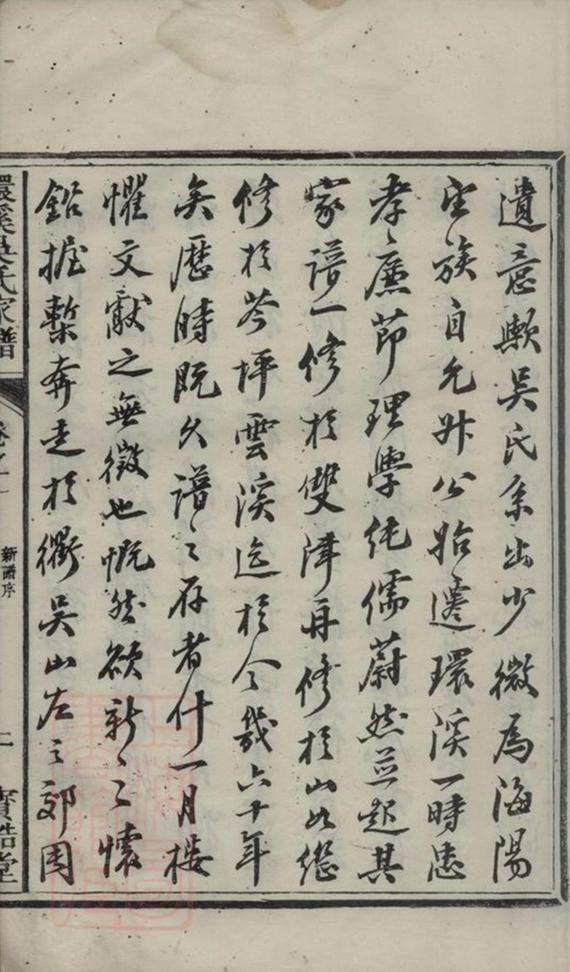 遺意歟吳氏系出少微為海陽
望族自允升公始遷環溪一時忠
孝廉節理學純儒蔚然並起其
家譜一修於雙再修於山繼
修於岑坪雲溪迄於今幾六十年
矣歷時既久譜之存者什一月樓
懼文獻之無徵也慨然欲新之懷
鉛握槧奔走於衢吳山左之郊周
環溪吳氏家譜
卷之一
新譜序
二
寶誥堂